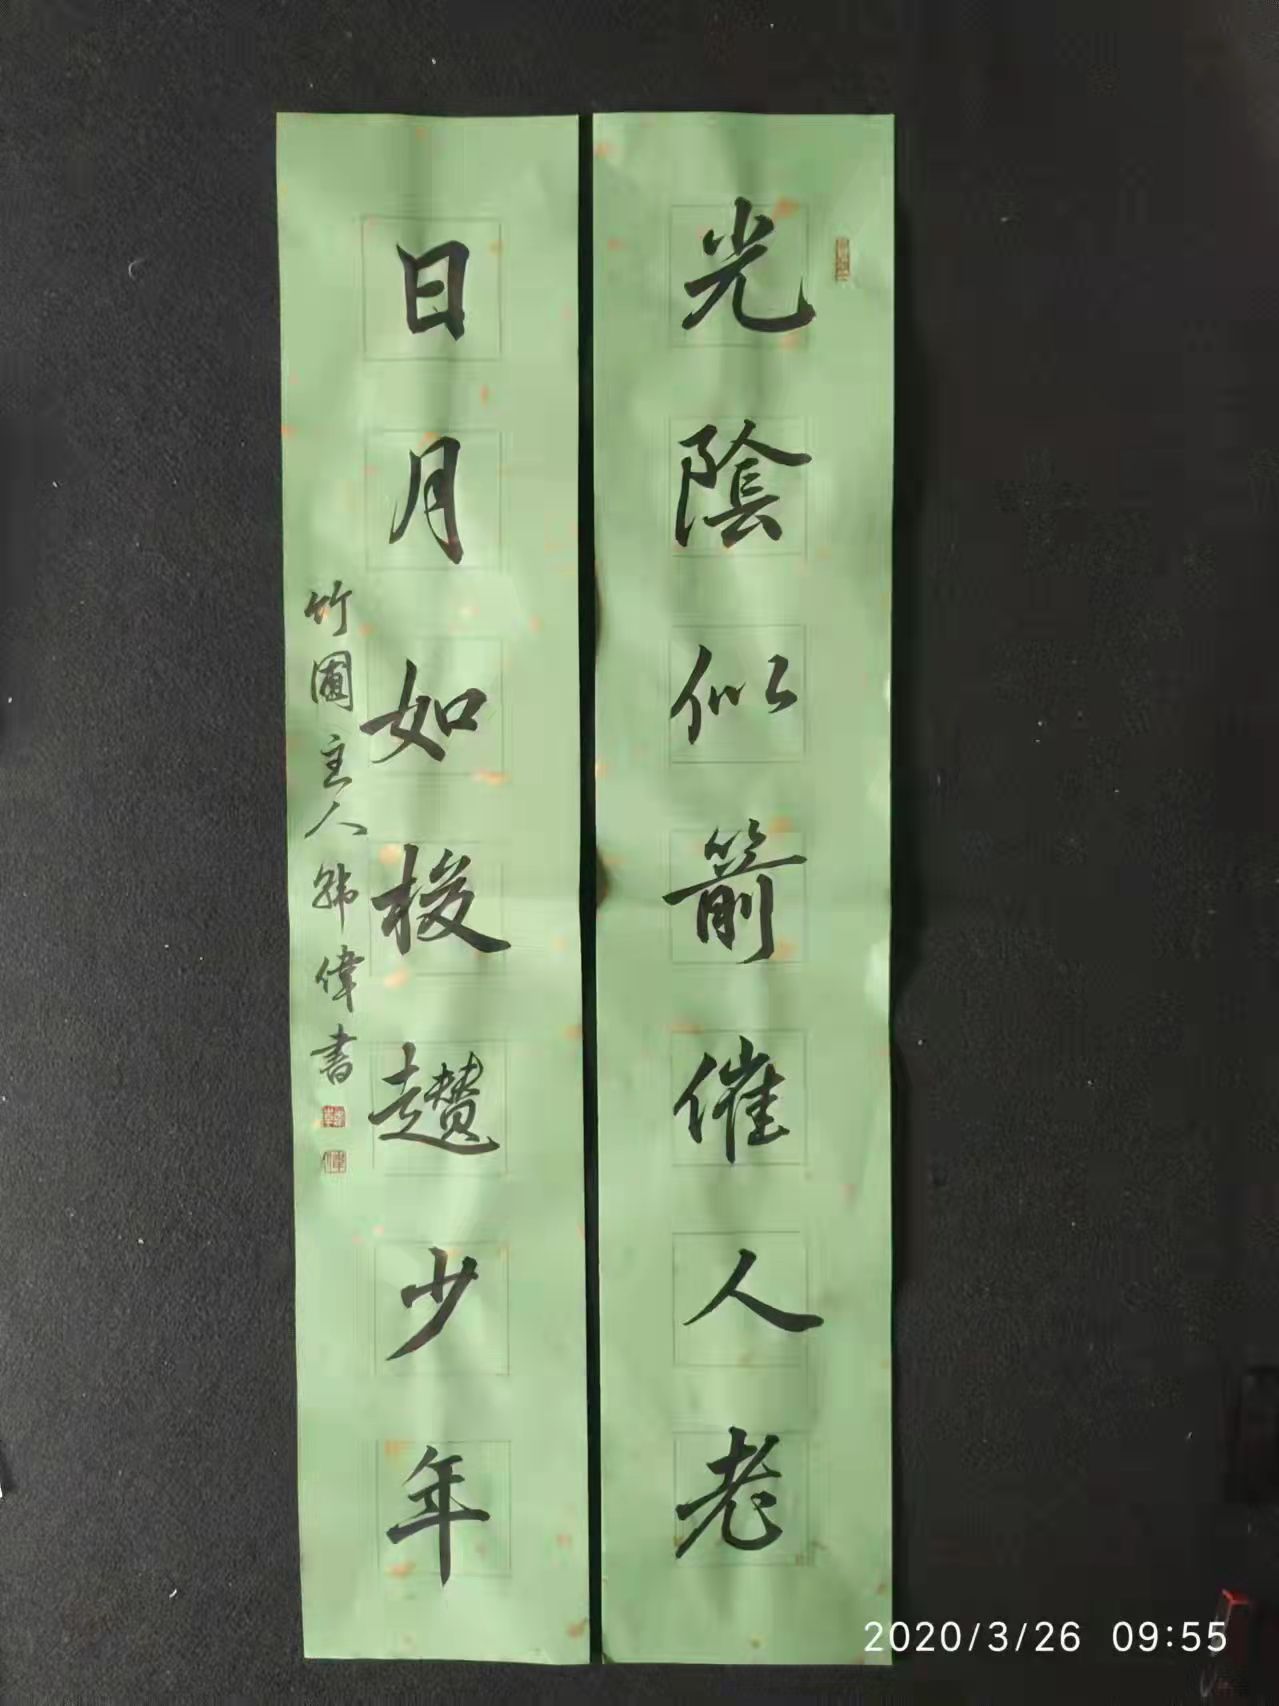 光陰似箭催人老
日月如梭趲少年
竹園主人韩偉書
2020/3/26 09:55